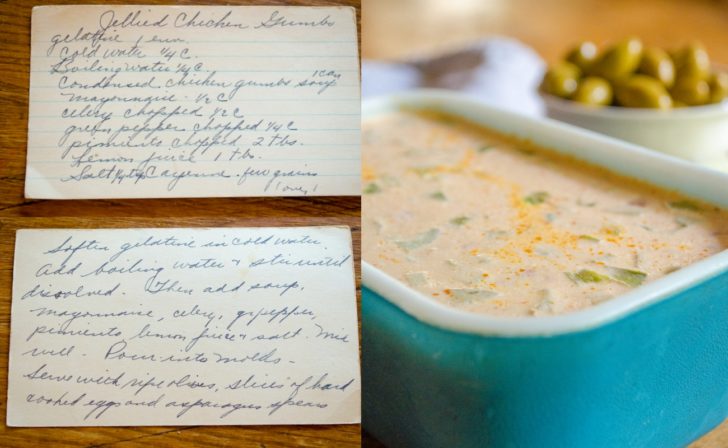 Jellied Chicken Gumbo
gelatine 1 env.
cold water 1/4 C.
Boiling water 1/4 C.
Condensed chicken gumbo soup 1 can
mayonnaise - 1/2 C
celery chopped 1/2 C
green pepper chopped 1/4 C
pimiento chopped 2 tbs.
Lemon juice 1 tbs.
Salt Cayenne - few grains
(over)
Soften gelatine in cold water.
Add boiling water & stir until
dissolved. Then add soup,
mayonnaise, celery, gr. pepper,
pimiento lemon juice & salt. Mix
well. Pour into molds -
Serve with ripe olives, slices of hard
cooked eggs and asparagus spears